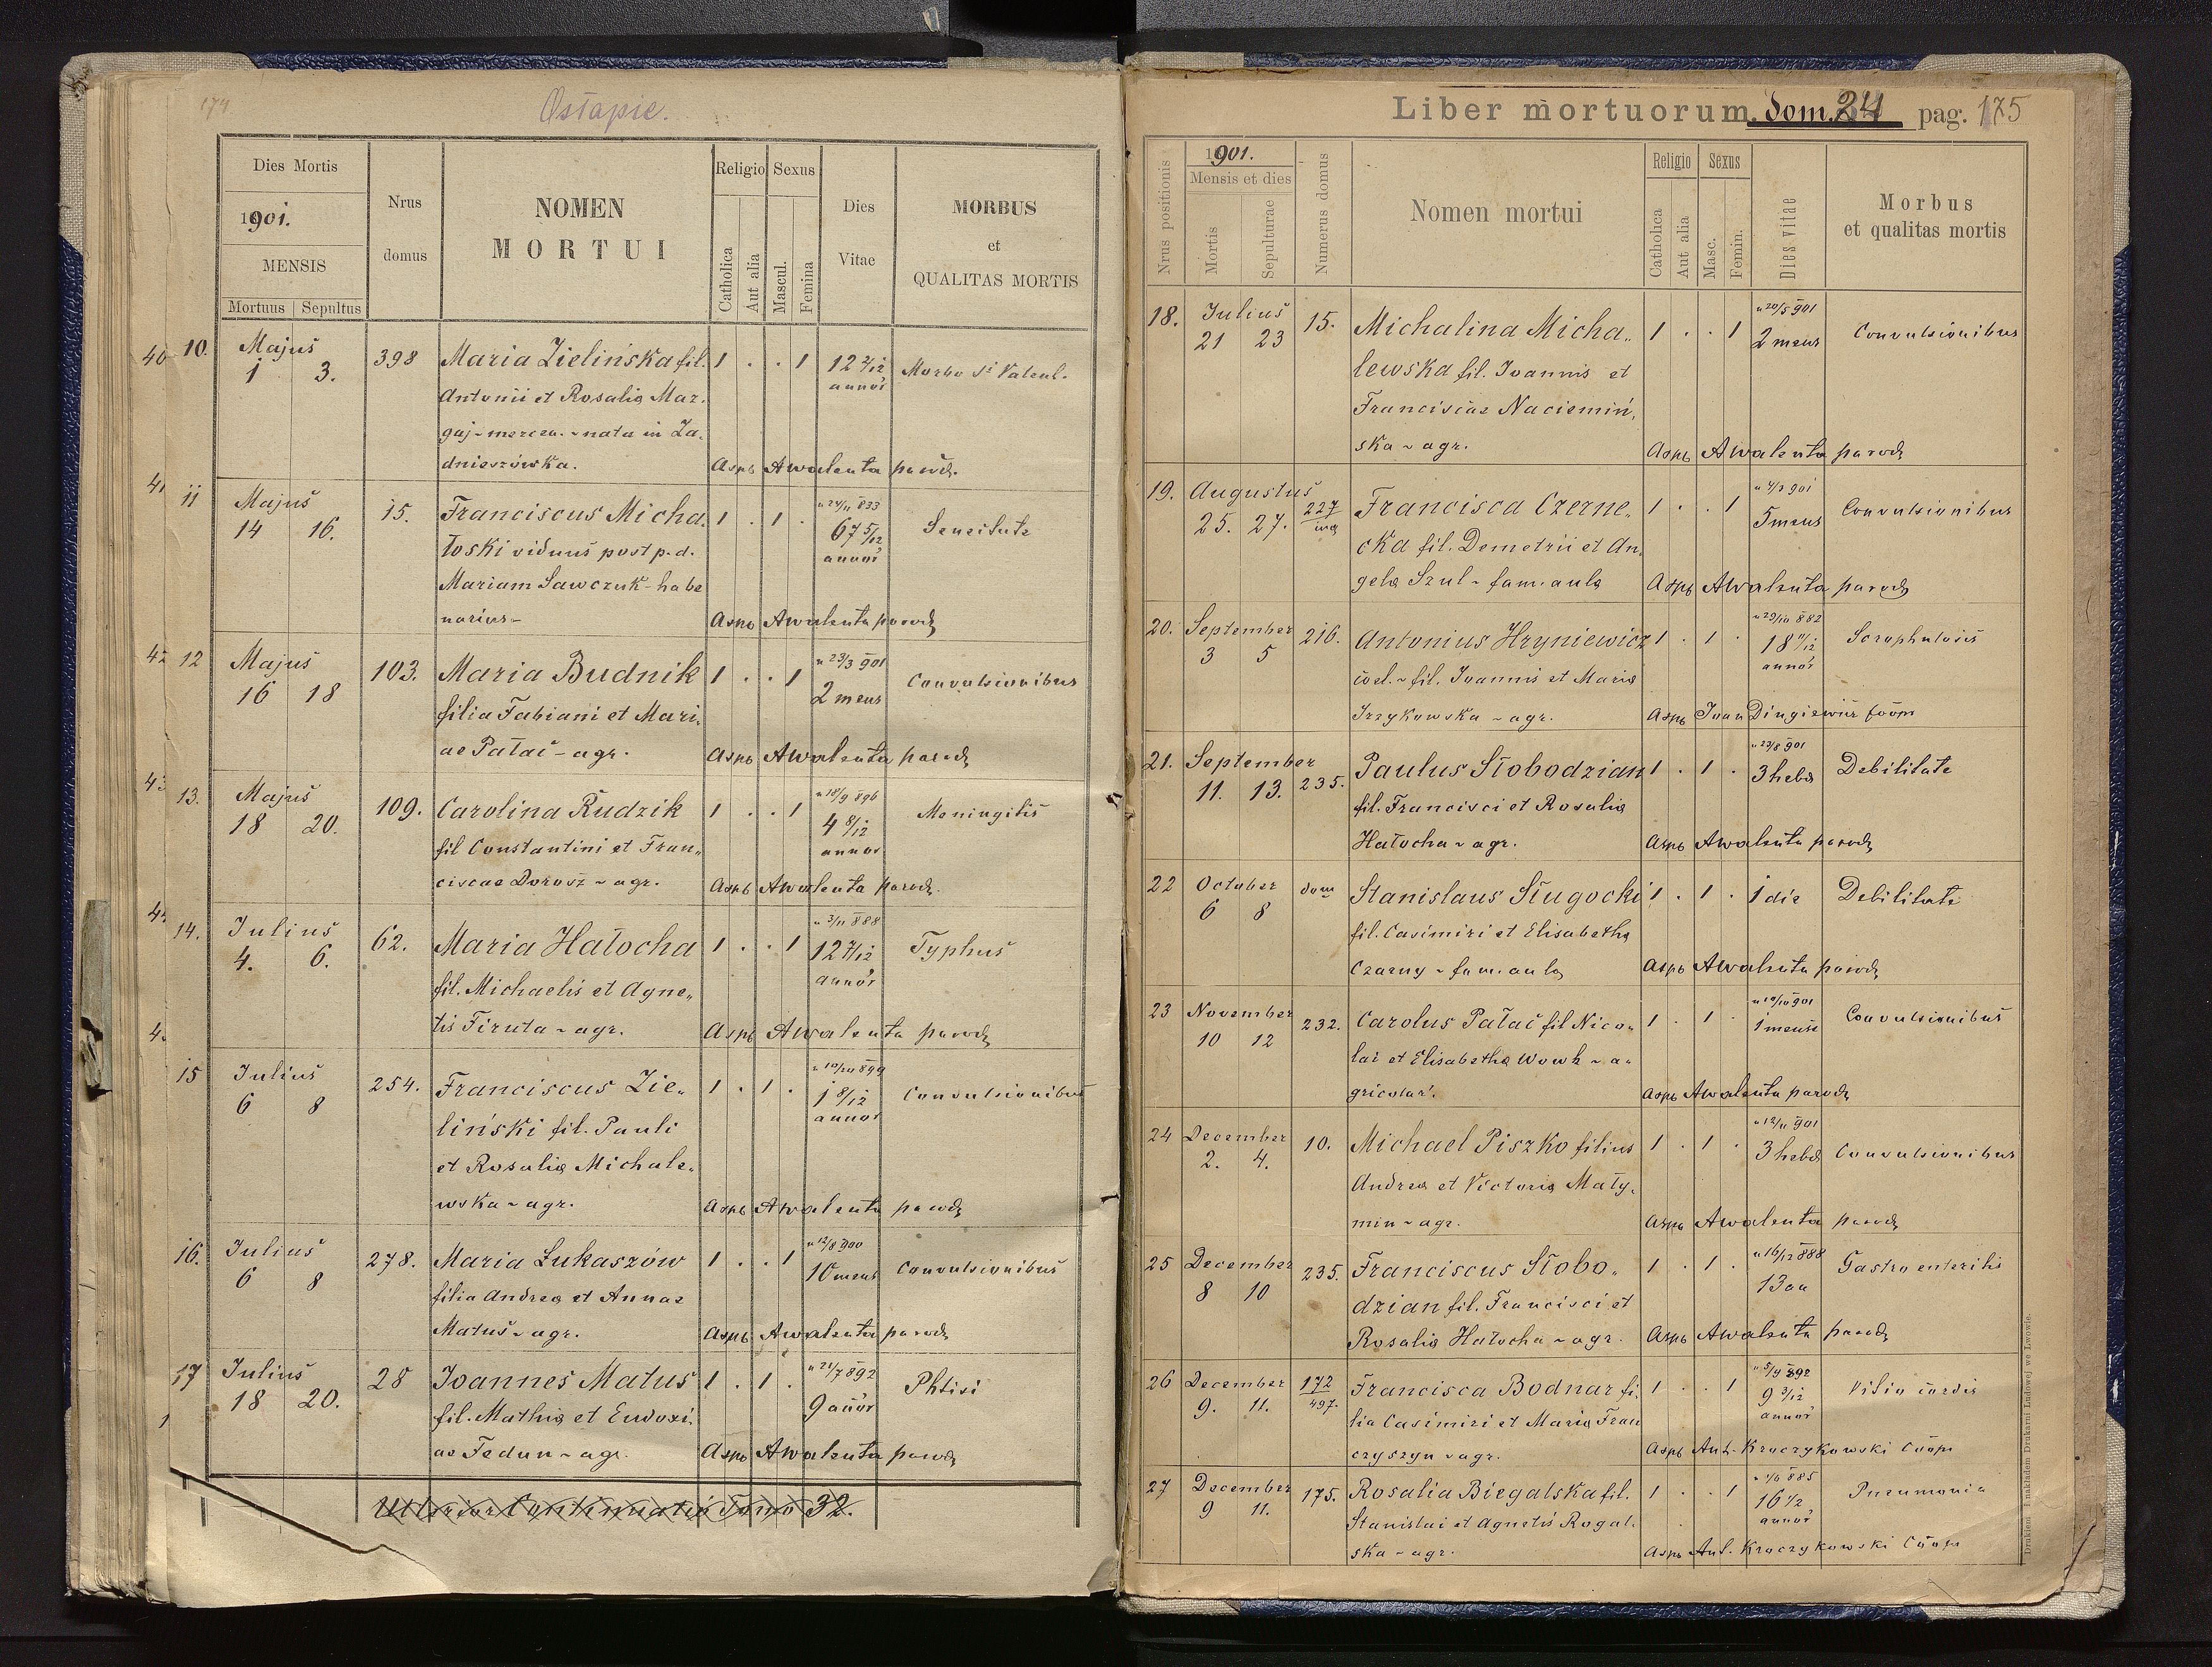 174
Ostapie.
Dies Mortis
1901.
MENSIS
Mortuus Sepultus
Nrus
domus
NOMEN
MORTUI
Religio Sexus
Catholica
Aut alia
Mascul.
Femina
Dies
Vitae
MORBUS
et
QUALITAS MORTIS
40 10. Majus 398 Maria Zielińska fil. 1 . . 1 12 2/12 Morbo St Valent.
1 3. Antonii et Rosalia Mar. annor
gaj - mercen. - nata in Za.
dnieszówka. Aspb Awalenta paroch.
41 11 Majus 15. Franciscus Micha. 1 . 1 . n 24/11 833 Senectute
14 16. łoski viduus post p. d. 67 5/12
Mariam Sawczuk - habe annor
narius - Aspb Awalenta paroch
42 12 Majus 103. Maria Budnik 1 . . 1 n 23/3 901 Convulsionibus
16 18 filia Fabiani et Mari. 2 mens
ae Patač - agr. Aspb Awalenta paroch
43 13. Majus 109. Carolina Rudzik 1 . . 1 n 18/9 896 Meningitis
18 20. fil Constantini et Fran„ 4 8/12
ciscae Dorosz - agr. annor
Aspb Awalenta paroch.
44 14. Julius 62. Maria Hałocha 1 . . 1 n 3/11 888 Typhus
4. 6. fil. Michaelis et Agne„ 12 7/12
tis Firuta - agr. annor
Aspb Awalenta paroch
15 Julius 254. Franciscus Zie„ 1 . 1 . Convulsionibus
6 8 liński fil. Pauli 1 8/12
et Rosalia Michale„ annor
wska - agr. Aspb Awalenta paroch
16. Julius 278. Maria Łukaszów 1 . . 1 n 12/8 900 Convulsionibus
6 8 filia Andrea et Annae 10 mens
Matuš - agr. Aspb Awalenta paroch
17 Julius 28 Joannes Matus 1 . 1 . n 21/7 892 Phtisi
18 20. fil. Mathia et Eudoxi. 9 annor
ae Fedun - agr. Aspb Awalenta paroch
Ulterior Continuatio Tomo 32.
Liber mortuorum. dom. 24 pag. 175
Nrus positionis
1901.
Mensis et dies
Mortis
Sepulturae
Numerus domus
Nomen mortui
Religio Sexus
Catholica
Aut alia
Masc.
Femin.
Dies vitae
Morbus
et qualitas mortis
18. Julius 15. Michalina Micha„ 1 . . 1 n 20/5 901 Convulsionibus
21 23 lewska fil. Joannis et 2 mens
Franciscae Naciemiń„
ska - agr. Aspb Awalenta paroch
19. Augustus 227 Francisca Czerne„ 1 . . 1 5 mens Convulsionibus
25. 27. cka fil. Demetrii et An„
gela Szul - fam. aula Aspb Awalenta paroch
20. September 216. Antonius Hryniewicz 1 . 1 . n 29/10 882 Scrophulosis
3 5 coel. - fil. Joannis et Maria 18 11/12
Irzykowska - agr. annor
Aspb Joan Dingiewicz coop
21. September 235. Paulus Słobodzian 1 . 1 . n 23/8 901 Debilitate
11. 13. fil. Francisci et Rosalia 3 hebd
Hałocha - agr. Aspb Awalenta paroch
22 October dom Stanislaus Sługocki 1 . 1 . 1 die Debilitate
6 8 fil. Casimiri et Elisabetha
Czarny - fam. aula Aspb Awalenta paroch
23 November 232. Carolus Patač fil Nico„ 1 . 1 . n 10/10 901 Convulsionibus
10 12 lai et Elisabetha Wowk - a„ 1 mense
gricolar. Aspb Awalenta paroch
24 December 10. Michael Piszko filius 1 . 1 . n 12/11 901 Convulsionibus
2. 4. Andrea et Victoria Maty„ 3 hebd
min - agr. Aspb Awalenta paroch
25 December 235. Franciscus Słobo„ 1 . 1 . n 16/12 888 Gastro enteritis
8 10 dzian fil. Francisci et 13 an
Rosalia Hałocha - agr. Aspb Awalenta paroch
26 December 172 Francisca Bodnar fi. 1 . . 1 n 5/9 892 Vitio cordis
9. 11. 497. lia Casimiri et Maria Fran 9 3/12
czyszyn - agr. annor
Aspb Ant. Kraczykowski Coop
27 December 175. Rosalia Biegalska fil. 1 . . 1 n 1/6 885 Pneumonia
9 11. Stanislai et Agnetis Rogal. 16 1/2
ska - agr. annor
Aspb Ant. Kraczykowski Coop
Drukiem i nakładem Drukarni Ludowej we Lwowie.